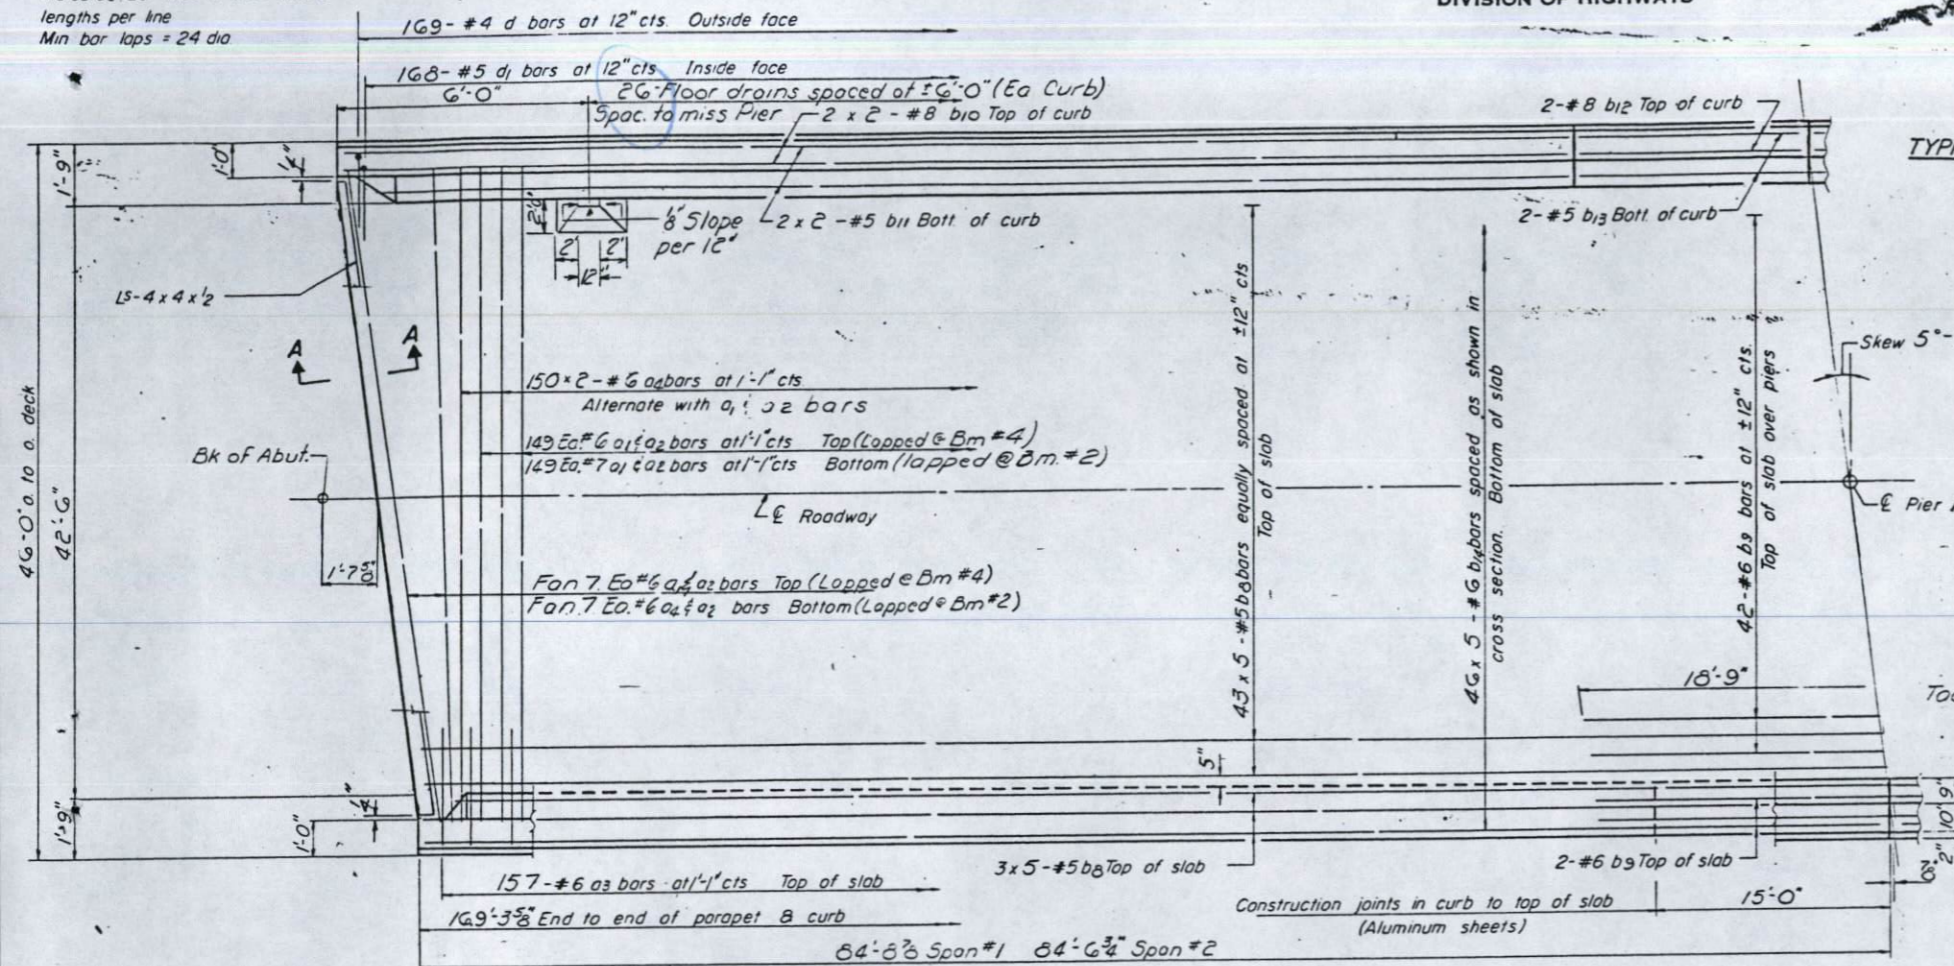 DIVISION OF HIGHWAYS
lengths per line
Min bar laps = 24 dia
169-#4 d bars at 12"cts. Outside face
168-#5 d1 bars at 12"cts Inside face
6'-0"
26-Floor drains spaced at ±6'-0" (Ea Curb)
Spac. to miss Pier
2 x 2 - #8 b10 Top of curb
2-#8 b12 Top of curb
1'-0"
1'-9"
2'-6"
1/8" Slope
per 12"
2'
2'
12"
2 x 2 -#5 b11 Bott. of curb
2-#5 b13 Bott. of curb
Ls-4 x 4 x 1/2
A
A
Skew 5°-
150x2-#6 a4bars at 1'-1" cts
Alternate with a1 & a2 bars
149 Ea.#6 a1 & a2 bars at 1'-1"cts Top (Lapped @ Bm #4)
149 Ea.#7 a1 & a2 bars at 1'-1"cts Bottom (lapped @ Bm. #2)
Bk of Abut.
℄ Roadway
℄ Pier
1'-7 5/8"
46'-0" o. to o. deck
42'-6"
Fan 7. Ea #6 a4 & a2 bars Top (Lapped @ Bm #4)
Fan 7 Ea.#6 a4 & a2 bars Bottom (Lapped @ Bm #2)
43 x 5 -#5 b8 bars equally spaced at ±12" cts
Top of slab
46 x 5 - #6 bars spaced as shown in
cross section. Bottom of slab
42-#6 b9 bars at ±12" cts.
Top of slab over piers
18'-9"
5"
1'-9"
1'-0"
10"
9"
2"
3 x 5-#5 b8 Top of slab
2-#6 b9 Top of slab
157-#6 a3 bars at 1'-1"cts Top of slab
Construction joints in curb to top of slab
(Aluminum sheets)
15'-0"
169'-3 5/8" End to end of parapet & curb
84'-8 7/8 Span #1 84'-6 3/4" Span #2